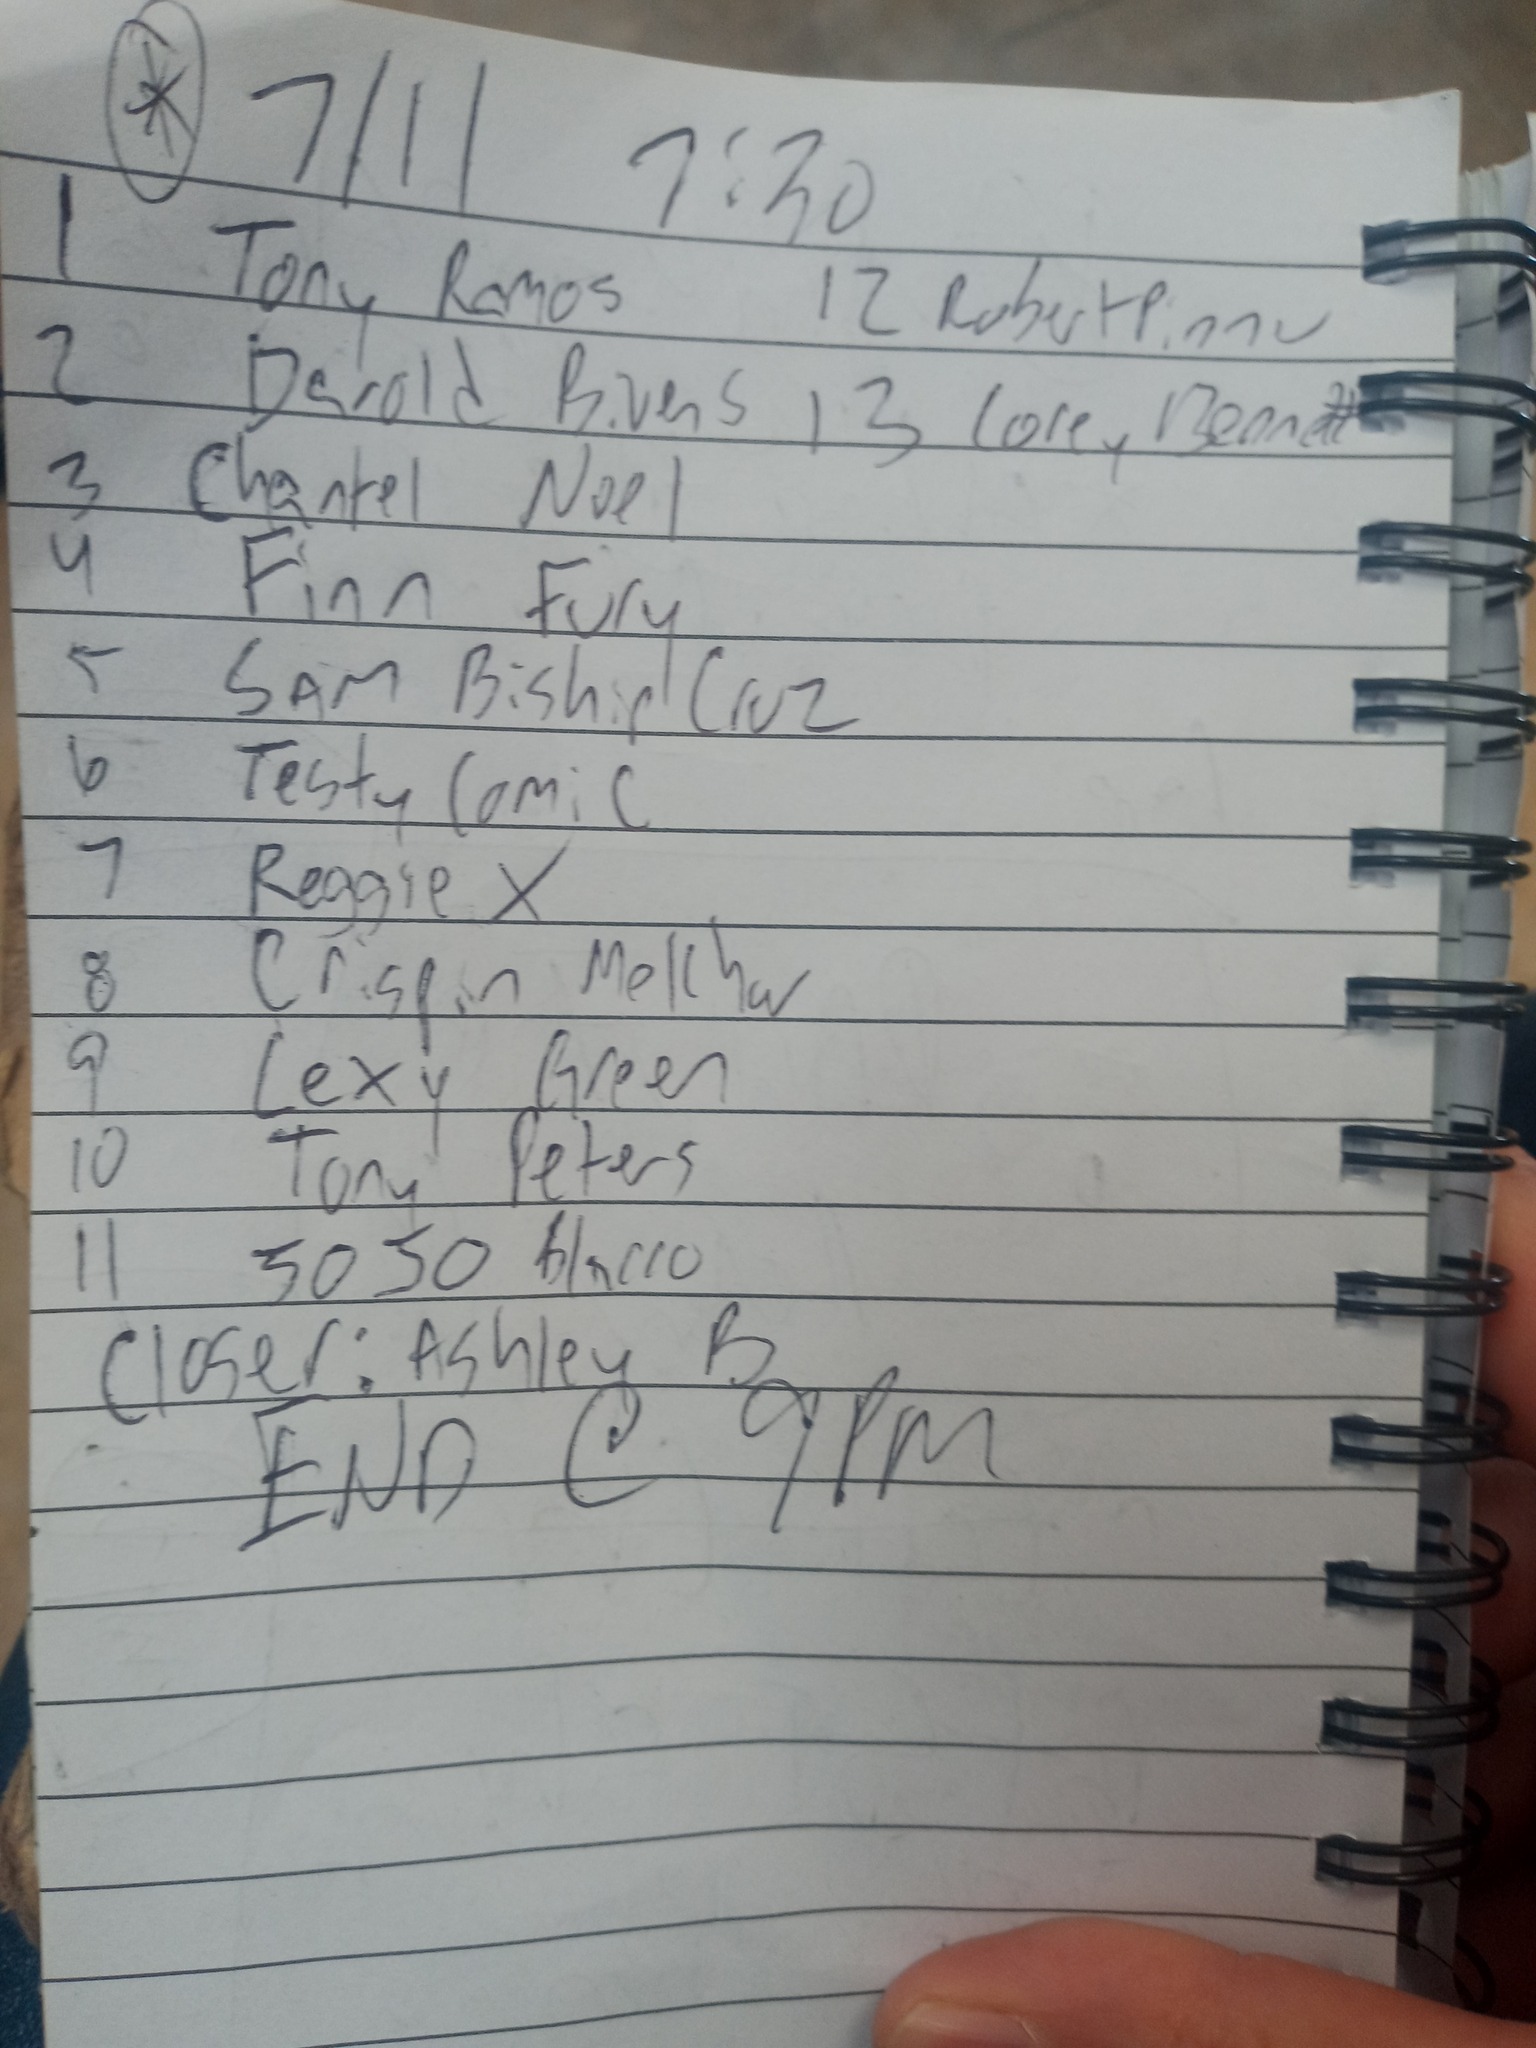 * 7/11 7:30
1 Tony Ramos 12 Robert
2 Darold Bivens 13 Corey Bennett
3 Chantel Noel
4 Finn Fury
5 SAM Biship Cruz
6 Testy Comic
7 Reggie X
8 Crispin
9 Lexy Green
10 Tony Peters
11 5050 Blacco
Closer: Ashley B
END @ 9PM